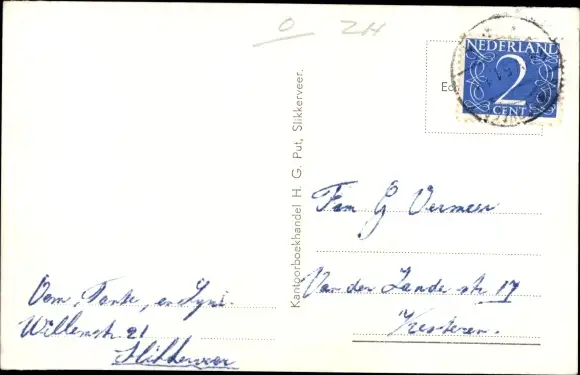 O ZH
NEDERLAND
2
CENT
Kantoorboekhandel H. G. Put, Slikkerveer.
Fam G Vermeer
Van der Zande str 17
Kesteren.
Oom, Tante, en
Willemstr. 21
Slikkerveer